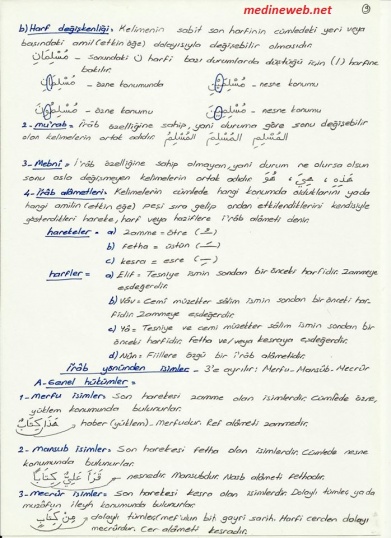 medineweb.net
9
b) Harf değişkenliği: Kelimenin sabit son harfinin cümledeki yeri veya
başındaki amil (etkin öğe) dolayısıyla değişebilir olmasıdır.
مُسْلِمَانِ - sonundaki ن harfi bazı durumlarda düştüğü için (ا) harfine
bakılır.
مُسْلِمَانِ - özne konumunda مُسْلِمَيْنِ - nesne konumu
مُسْلِمُونَ - özne konumu مُسْلِمِينَ - nesne konumu
2- mu'rab = i'râb özelliğine sahip, yani duruma göre sonu değişebilir
olan kelimelerin ortak adıdır. المُسْلِمُ المُسْلِمَ المُسْلِمِ
3- Mebni = i'râb özelliğine sahip olmayan, yani durum ne olursa olsun
sonu asla değişmeyen kelimelerin ortak adıdır. هُوَ ، هِيَ ، هَذِهِ
4- i'râb alâmetleri = Kelimelerin cümlede hangi konumda olduklarını ya da
hangi amilin (etkin öğe) peşi sıra gelip ondan etkilendiklerini kendisiyle
gösterdikleri hareke, harf veya haziflere i'râb alâmeti denir.
harekeler = a) zamme = ötre (ـُ)
b) fetha = üstün (ـَ)
c) kesra = esre (ـِ)
harfler = a) Elif = Tesniye ismin sondan bir önceki harfidir. Zammeye
eşdeğerdir.
b) Vâv = Cemi müzekker sâlim ismin sondan bir önceki har-
fidir. Zammeye eşdeğerdir.
c) Yâ = Tesniye ve cemi müzekker sâlim ismin sondan bir
önceki harfidir. Fetha ve/veya kesraya eşdeğerdir.
d) Nûn = Fiillere özgü bir i'râb alâmetidir.
i'râb yönünden isimler - 3'e ayrılır: Merfu - Mansûb - Mecrûr
A- Genel hükümler =
1- Merfu isimler = Son harekesi zamme olan isimlerdir. Cümlede özne,
yüklem konumunda bulunurlar.
هَذَا كِتَابٌ haber (yüklem) - Merfudur. Ref alâmeti zammedir.
2- mansub isimler = Son harekesi fetha olan isimlerdir. Cümlede nesne
konumunda bulunurlar.
قَرَأَ عَلِيٌّ كِتَابًا nesnedir. Mansubdur. Nasb alâmeti fethadır.
3- mecrûr isimler = Son harekesi kesra olan isimlerdir. Dolaylı tümleç ya da
muzâfun ileyh konumunda bulunurlar.
مِنْ كِتَابٍ dolaylı tümleç (mef'ulun bih gayri sarih. Harfi cerden dolayı
mecrûrdur. Cer alâmeti kesradır.